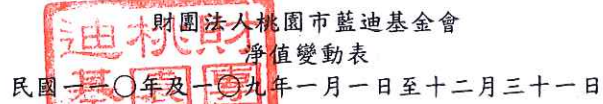 財團法人桃園市藍迪基金會
淨值變動表
民國一一〇年及一〇九年一月一日至十二月三十一日